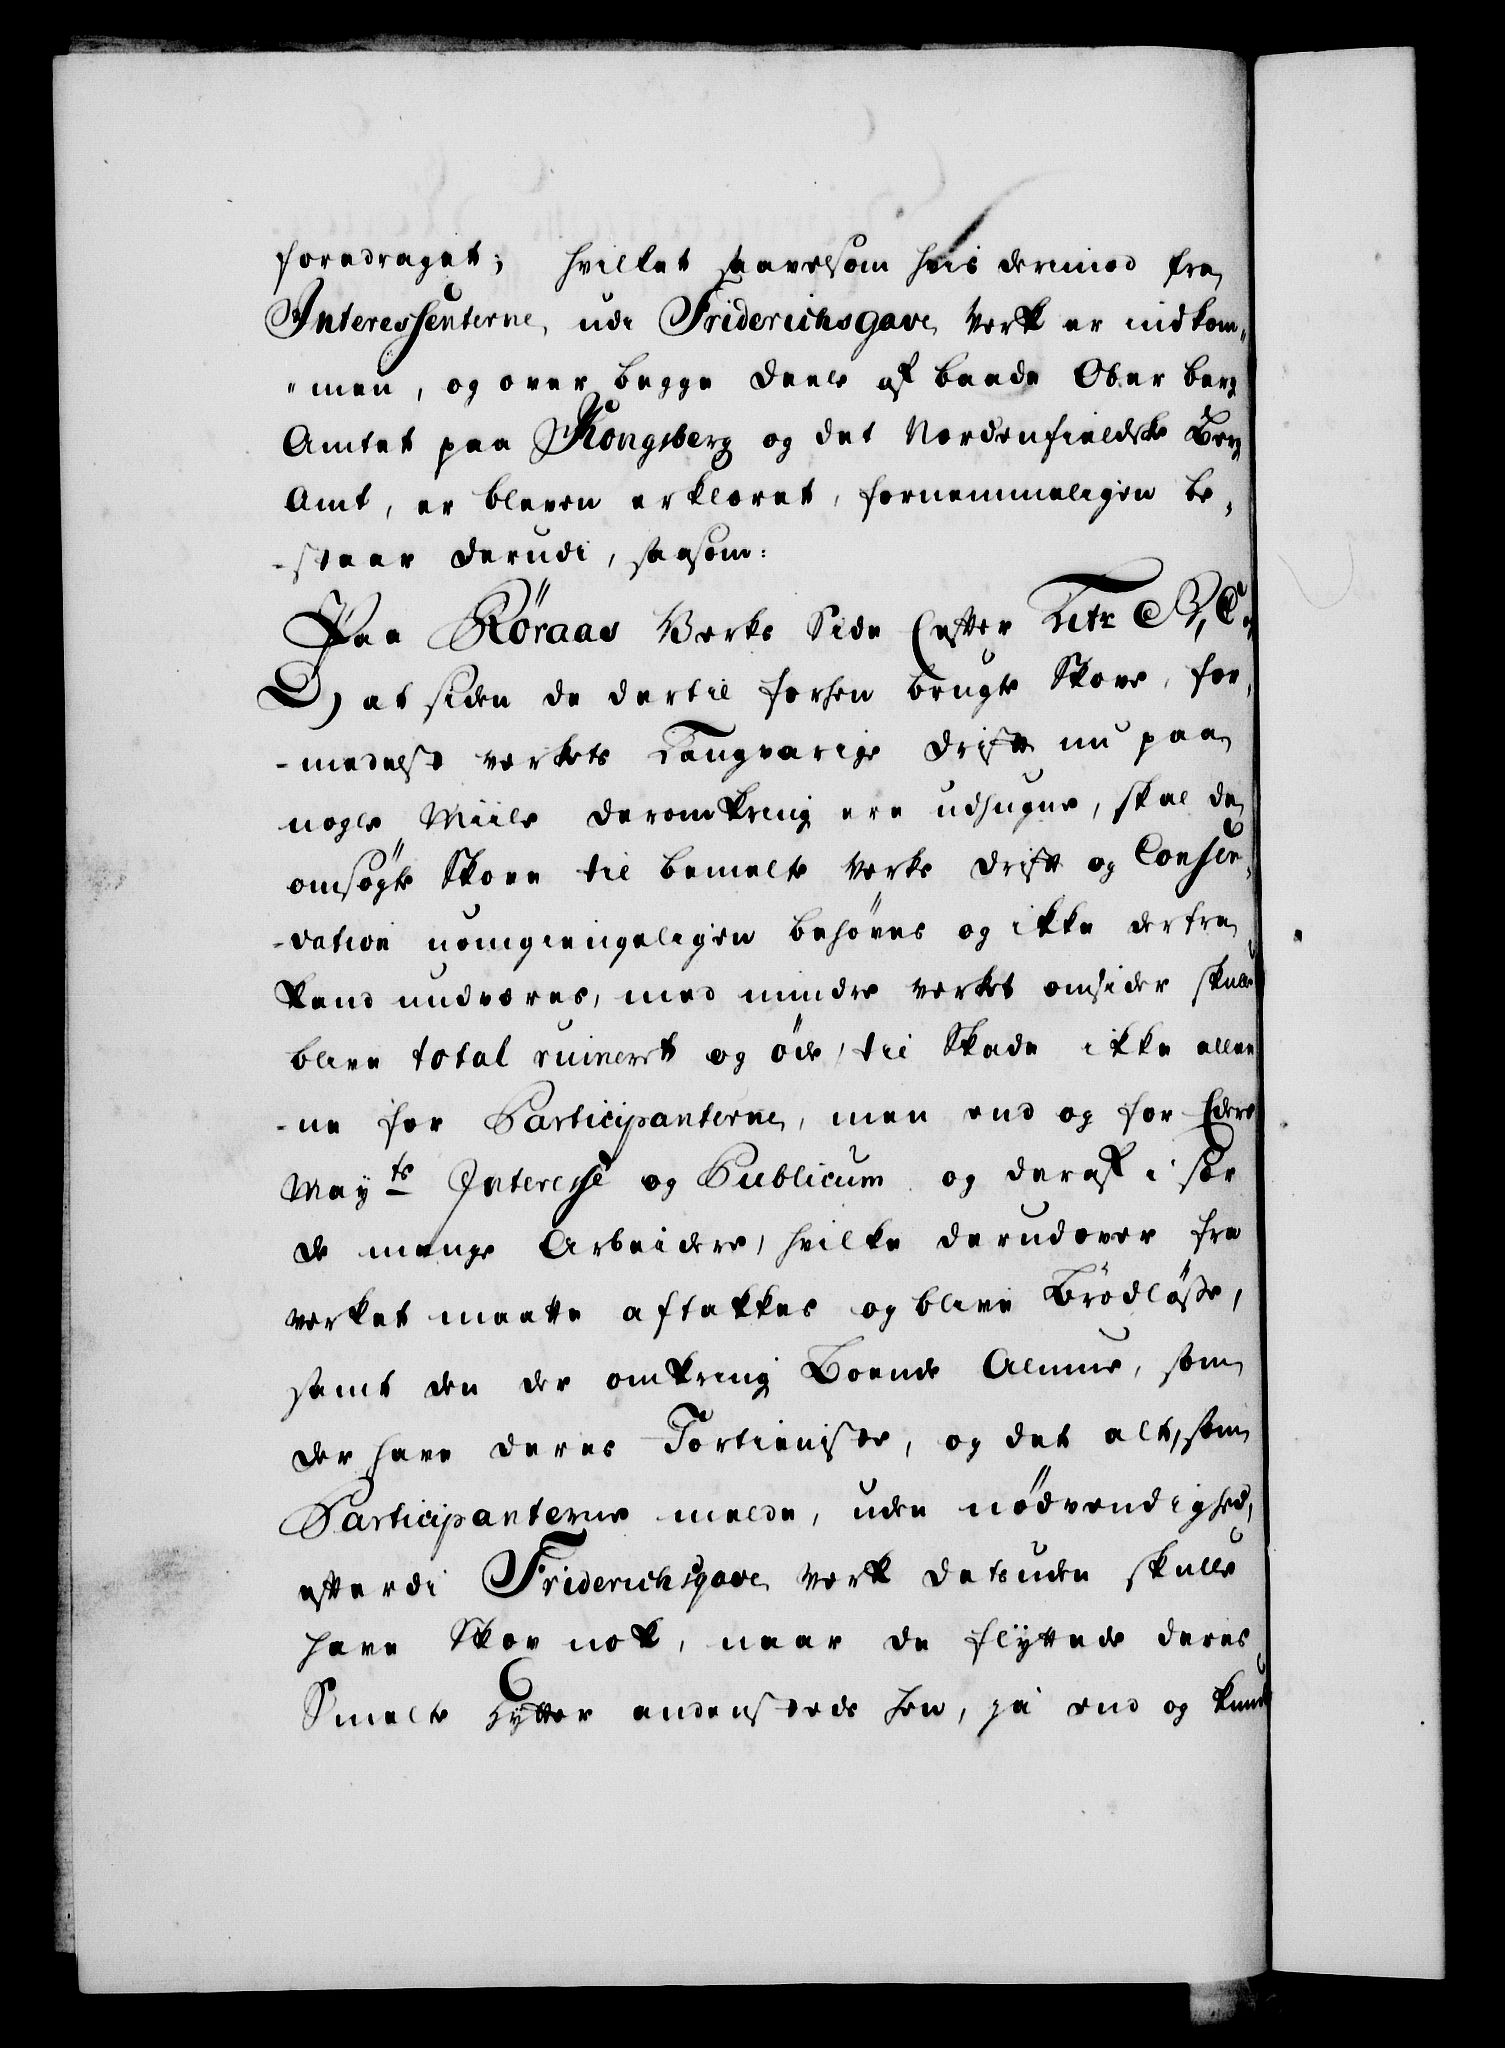 foredraget; hvilket saavelsom hvis derimod fra
Interessenterne udi Friderichsgave Verk er indkom-
-men, og over begge Deele af baade Ober berg
Amtet paa Kongsberg og det Nordenfieldske Berg
Amt, er bleven erklæret, fornemmeligen be-
-staar derudi, saasom:
Paa Röraas Verks Side (efter Litr B, C.
D) at siden de dertil forhen brugte Skove, for-
-medelst verkets Langvarige Drift nu paa
nogle Miile deromkring ere udhugne, skal de
omsögte Skove til bemelte Verks Drift og Conser-
-vation uomgiengeligen behöves og ikke derfra
kand undværes, med mindre verket omsider skulle
blive total ruinert og öde, til Skade ikke alle
-ne for Participanterne, men end og for Eders
Mayts Interesse og Publicum og deraf i sær
de mange Arbeidere, hvilke derudover fra
verket maatte aftakkes og blive Brödlösse,
samt den der omkring Boende Almue, som
der have deres Fortieniste, og det alt, som
Participanterne melde, uden nödvendighed,
efterdi Friderichsgave Verk desuden skulle
have Skov nok, naar de flyttede deres
Smelte Hytter andensteds hen, ja end og kunde